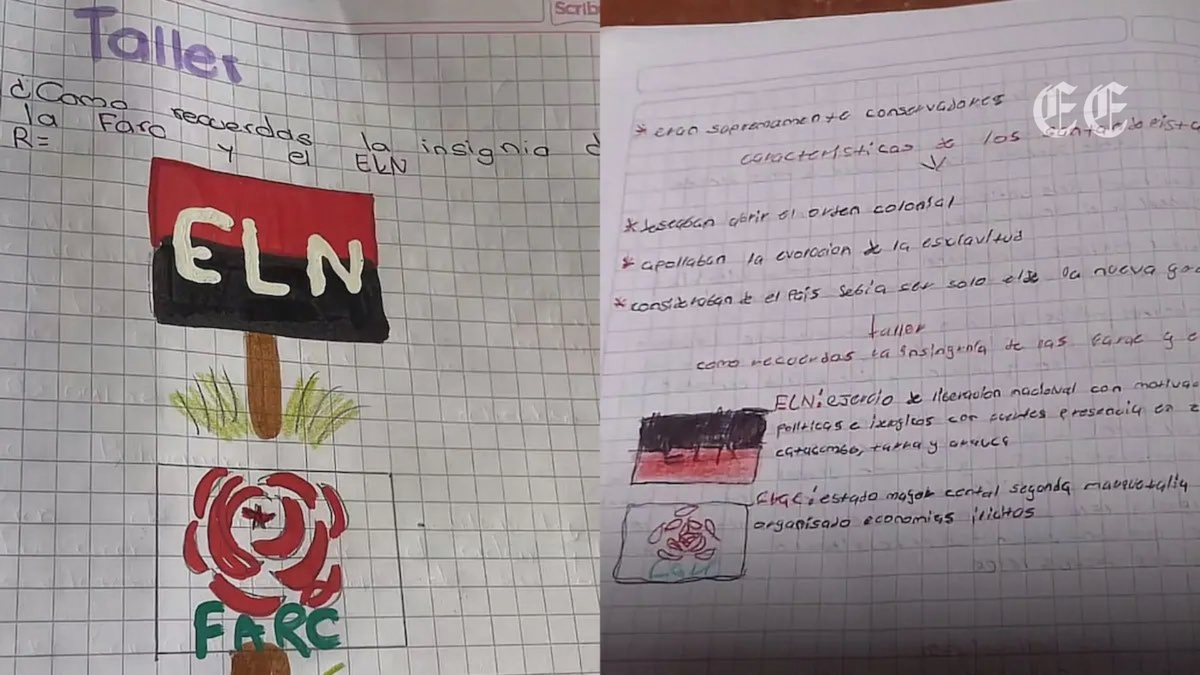 Scrib
Taller
¿Como recuerdas la insignia d
la Farc y el ELN
R=
ELN
FARC
EE
* eran sopremamente conservadores
caracteristicas de los
* deseaban abrir el orden colonial
* apollaban la evoracion de la esclavitud
* considerában de el Pais debia ser solo de la nueva
taller
como recuerdas la insingenia de las Farc y e
ELN: ejercio de liberación nacional con motiva
politicas e con fuertes presencia en
catacumbo, tarra y arauca
estado mayor cental segunda marquetalia
organisado economias ilicitos